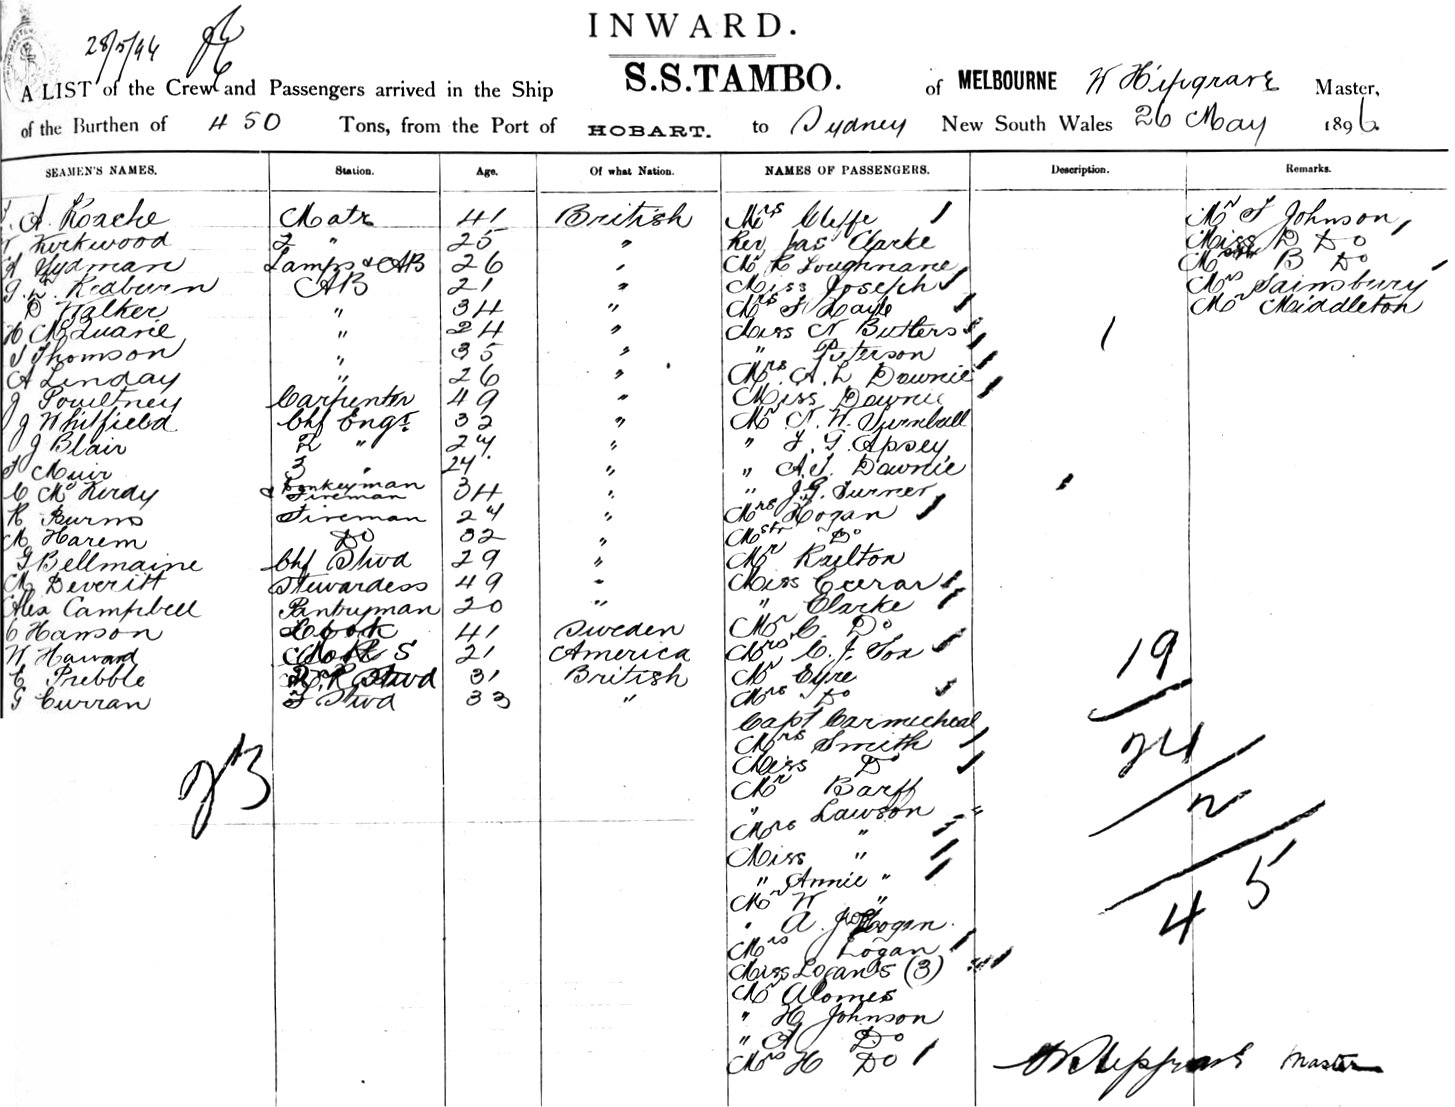 INWARD.
28/5/96
A LIST of the Crew and Passengers arrived in the Ship S.S. TAMBO. of MELBOURNE W Hipgrave Master,
of the Burthen of 450 Tons, from the Port of HOBART. to Sydney New South Wales 26 May 1896.
SEAMEN'S NAMES. Station. Age. Of what Nation. NAMES OF PASSENGERS. Description. Remarks.
A Roache Mate 41 British Mrs Cliffe Mr T Johnson
Kirkwood 2 " 25 " Rev Jas Clarke Miss D Do
Lamps & AB 26 " Mr R Loughnane B Do
Redburn AB 21 " Miss Joseph Mrs Sainsbury
D Walker " 34 " Mrs T Mr Middleton
H McQuarie " 24 " Miss N Butters
Thomson " 35 " " Peterson
A Linday " 26 " Mrs A. L Downie
J Poultney Carpenter 49 " Miss Downie
J Whitfield Chf Engr. 32 " Mr T. W. Turnbull
J Blair 2 " 24 " " F. G. Apsey
Muir 3 " 24 " " A. J. Downie
C McKurdy & Donkeyman Fireman 34 " " J. G. Turner
R Burns Fireman 24 " Mrs Hogan
M Harem Do 32 " Mstr Do
G Bellmaine Chf Stwd 29 " Mr Railton
M Deveritt Stewardess 49 " Miss
Alex Campbell Pantryman 20 " " Clarke
C Hanson Cook 41 Sweden Mr C Do
W Haward 21 America Mrs C. J. Fox
C Prebble Stwd 31 British Mr Eyre
G Curran F Stwd 33 " Mrs Do
Capt Carmicheal
Mrs Smith
Miss Do
Mr Barff
" Lawson
Mrs "
Miss "
" Annie "
Mr W "
" A. Logan.
Mrs Logan
Miss Logan's (3)
Mr Alomes
" H Johnson
" A Do
Mrs H Do
23
19
24
2
45
W Hipgrave Master